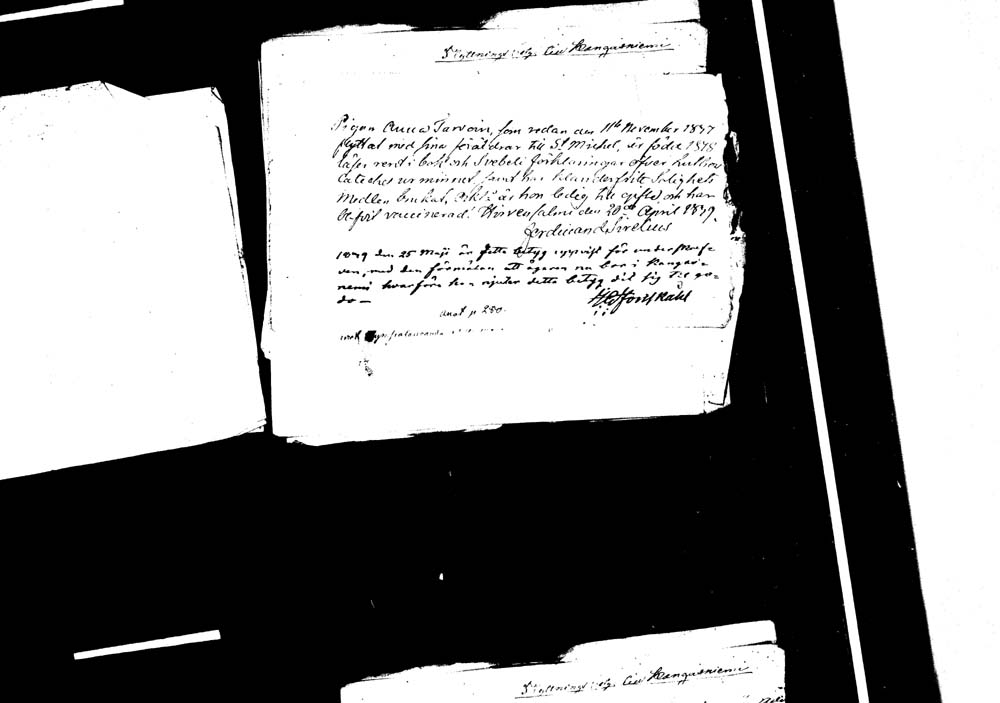 Flyttnings betg Till Kangasniemi
Pigan Anna Tarvoin, som redan den 11te November 1837
flyttat med sina föräldrar till St Michel, är född 1818
läser rent i bok och Svebelii förklaringar öfver
Cateches ur minnet, samt har klanderfritt Salighets
Medlen brukat, är hon ledig till gifte och har
befvit vaccinerad. Hirvensalmi den 30de April 1839.
Ferdinand Sirelius
1839 den 25 Maji är detta betyg uppvist för underskrif-
ven, med den förmälan att ägaren nu bor i Kangas-
niemi hvarföre hon njuter detta betyg dit sig till go-
do —
anot p 280.
Flyttnings betg Till Kangasniemi